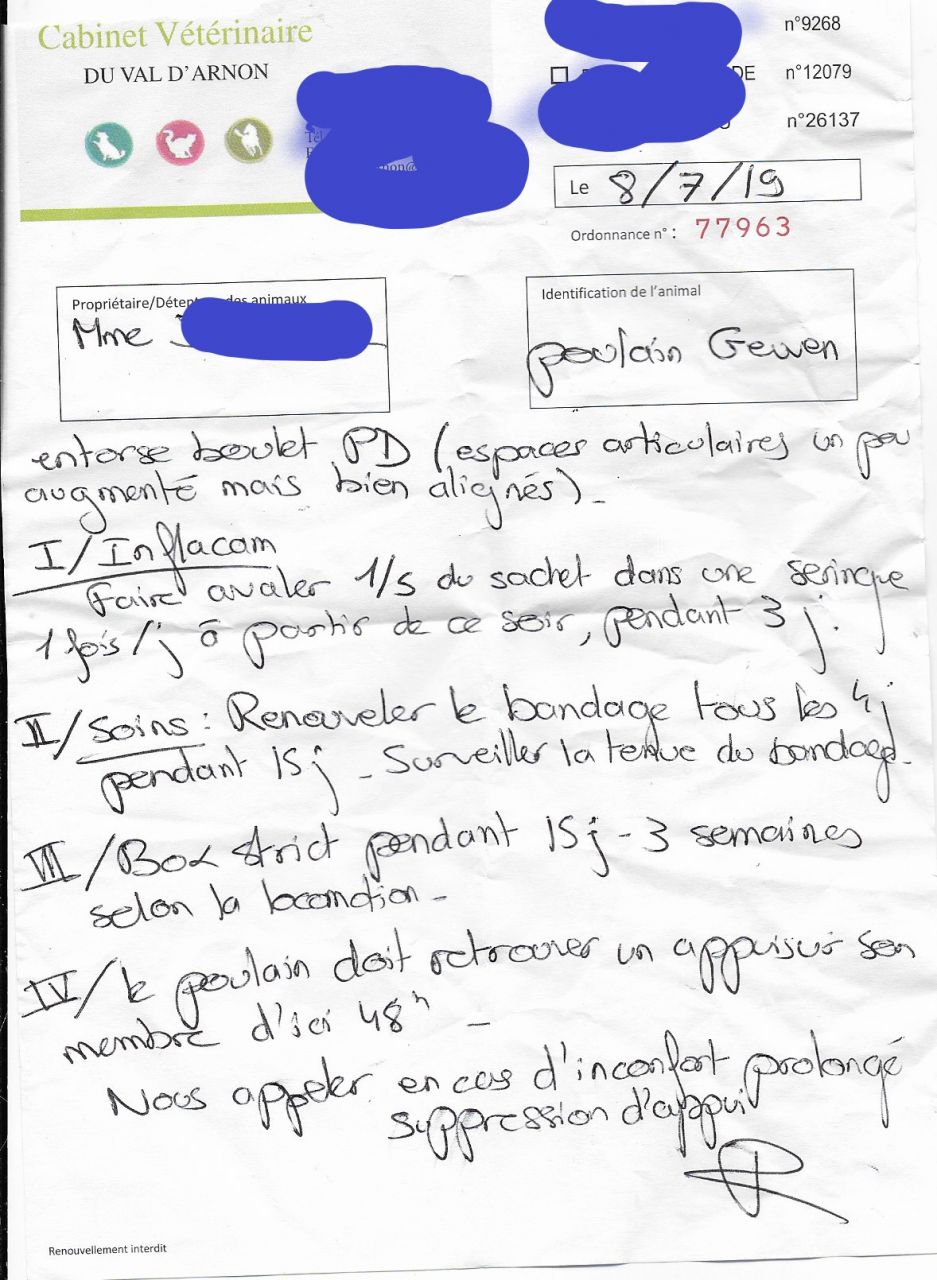 Cabinet Vétérinaire
DU VAL D'ARNON
n°9268
DE n°12079
n°26137
Le 8/7/19
Ordonnance n° : 77963
Propriétaire/Détent des animaux
Mme
Identification de l'animal
poulain Gewen
entorse boulet PD (espaces articulaires un peu
augmenté mais bien alignés) -
I/ Inflacam
Faire avaler 1/5 du sachet dans une seringue
1 fois/j à partir de ce soir, pendant 3 j.
II/ Soins : Renouveler le bandage tous les 4j
pendant 15j - Surveiller la tenue du bandage.
III/ Box strict pendant 15j - 3 semaines
selon la locomotion -
IV/ le poulain doit retrouver un appui sur son
membre d'ici 48h -
Nous appeler en cas d'inconfort prolongé
suppression d'appui
Renouvellement interdit